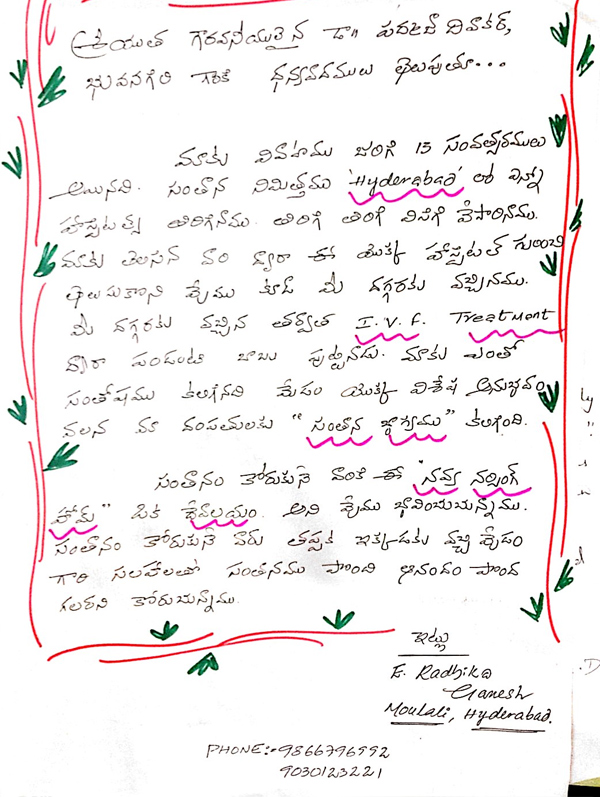 శ్రీయుత గౌరవనీయులైన డా॥ పదజ దివాకర్,
భువనగిరి గారికి ధన్యవాదములు తెలుపుతూ...
మాకు వివాహము జరిగి 15 సంవత్సరములు
అయినది. సంతాన నిమిత్తము 'Hyderabad' లో ఎన్నో
హాస్పటల్స్ తిరిగినాము. తిరిగి తిరిగి విసిగి వేసారినాము.
మాకు తెలిసిన వారి ద్వారా ఈ యొక్క హాస్పటల్ గురించి
తెలుసుకొని మేము కూడ మీ దగ్గరకు వచ్చినము.
మీ దగ్గరకు వచ్చిన తర్వాత I.V.F. Treatment
ద్వారా పండంటి బాబు పుట్టినాడు. మాకు ఎంతో
సంతోషము కలిగినది మేడం యొక్క విశేష అనుభవం
వలన మా దంపతులకు "సంతాన భాగ్యము" కలిగింది.
సంతానం కోరుకునే వారికి ఈ "నవ్య నర్సింగ్
హోమ్" ఒక దేవాలయం. అని మేము భావించుచున్నాము.
సంతానం కోరుకునే వారు తప్పక ఇక్కడకు వచ్చి మేడం
గారి సలహాలతో సంతనము పొంది ఆనందం పొంద
గలరని కోరుచున్నాము.
ఇట్లు
E. Radhika
Ganesh
Moulali, Hyderabad.
PHONE:- 9866796592
9030123221